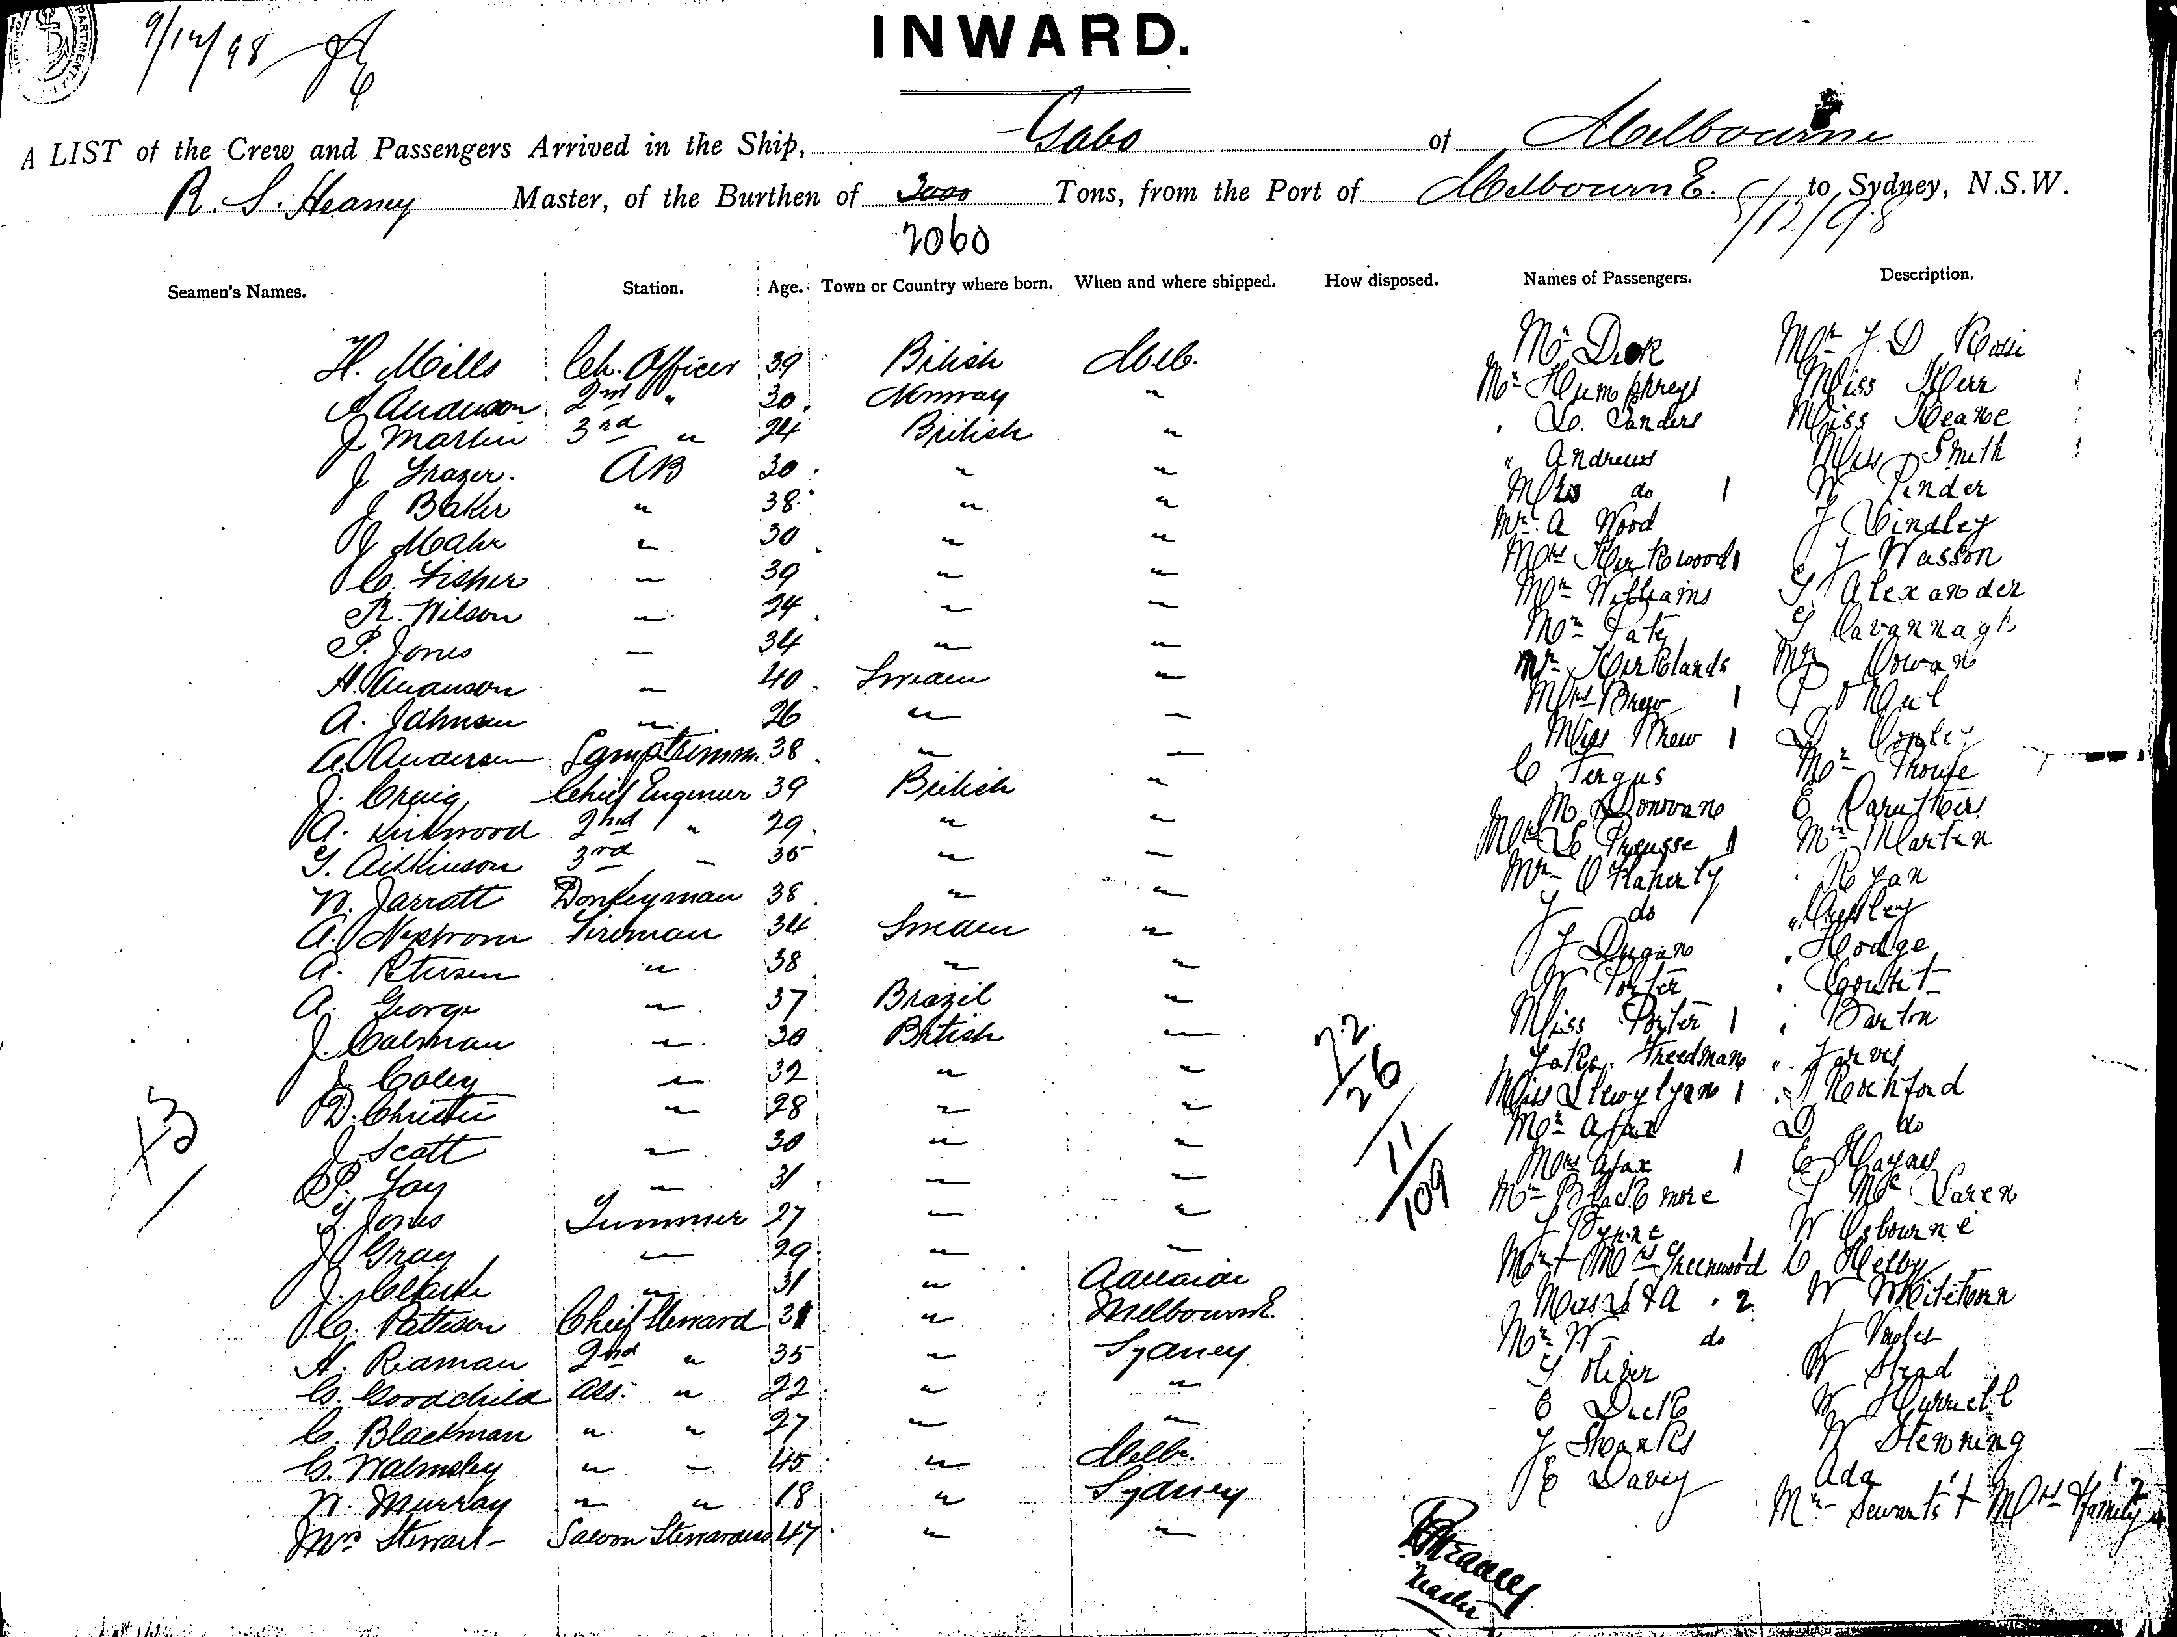 9/12/98
INWARD.
A LIST of the Crew and Passengers Arrived in the Ship, Gabo of Melbourne
R. S. Heaney Master, of the Burthen of 3000 Tons, from the Port of Melbourne. to Sydney, N.S.W.
2060 5/12/98
Seamen's Names. Station. Age. Town or Country where born. When and where shipped. How disposed. Names of Passengers. Description.
H. Mills Ch. Officer 39 British Melb. Mr Dick Mr J. D Rossi
A Anderson 2nd " 30 Norway " Mr Humphreys Miss Kerr
J Martin 3rd " 24 British " " Sanders Miss Keane
J Frazer. AB 30 " " " Andrews Miss Smith
J Baker " 38 " " Mrs do 1 W Pinder
J Mahr " 30 " " Mr A Wood J Lindley
C. Fisher " 39 " " Mrs Kirkwood 1 J Wasson
R. Wilson " 24 " " Mr Williams Alexander
P. Jones " 34 " " Mr Tate Cavannagh
H. Swanson " 40 Sweden " Mr Kirklands Mr Cowan
A. Johnson " 26 " " Mrs Brew 1
A. Anderson Lamptrimm. 38 " " Miss Brew 1
J. Craig Chief Engineer 39 British " C Fergus Mr Prouse
A. Kirkwood 2nd " 29 " " M Donovan E Caruthers
T. Aitkinson 3rd " 35 " " Mrs Preusse 1 Mr Martin
W. Jarratt Donkeyman 38 " " Mr O'Flaherty " Ryan
A. Nystrom Fireman 34 Sweden " J do "
A. Petersen " 38 " " J Dugan " Hodge
A. George " 37 Brazil " W Porter "
J. Calman " 30 British " Miss Porter 1 " Barton
J. Coley " 32 " " Jake Freedman " Jarvis
D. Christie " 28 " " Miss Llewylyan 1 " Rochford
J Scott " 30 " " Mr Ajax D do
P. Fay " 31 " " Mrs Ajax 1 E Hayes
T. Jones Trimmer 27 " " Mr Blackmore J McLaren
J Gray " 29 " " J Byrne W Osbourne
J. Clarke " 31 " Adelaide Mr + Mrs Greenwood 1 C Kelby
C. Pattison Chief Steward 31 " Melbourne Miss L & A " 2 W Whiteman
H. Readman 2nd " 35 " Sydney Mr W do
C. Goodchild Ass. " 22 " " Oliver W Stead
C. Blackman " " 27 " " E Duck W Hurrell
C. Walmsley " " 45 " Melb. J Shanks W Stenning
W. Murray " " 18 " Sydney E Davey Ada
Mrs Stewart Saloon Stewardess 47 " " Mr Servants 1 + Mrs & family
72
26
11
109
43
1
RSHeaney
Master